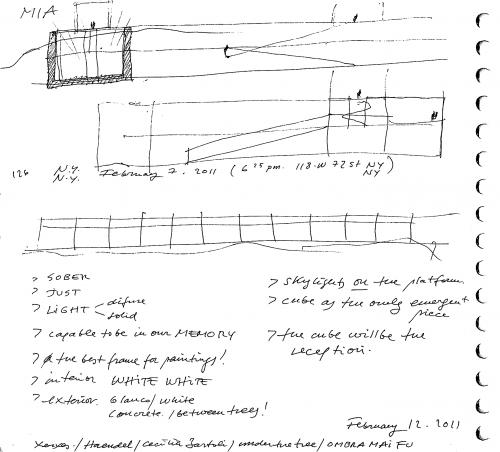 MIA
126 N.Y. February 7. 2011 (6 25 pm. 118 W 72 St NY
N.Y. NY)
> SOBER
> JUST
> LIGHT difuse
solid
> capable to be in our MEMORY
> the best frame for paintings!
> interior WHITE WHITE
> exterior. blanco/white
concrete. / between trees!
> skylights on the platform
> cube as the only emergent
piece
> the cube will be the
reception.
February 12. 2011
Xerxes / Haendel / Cecilia Bartoli / under the tree / OMBRA MAI FU